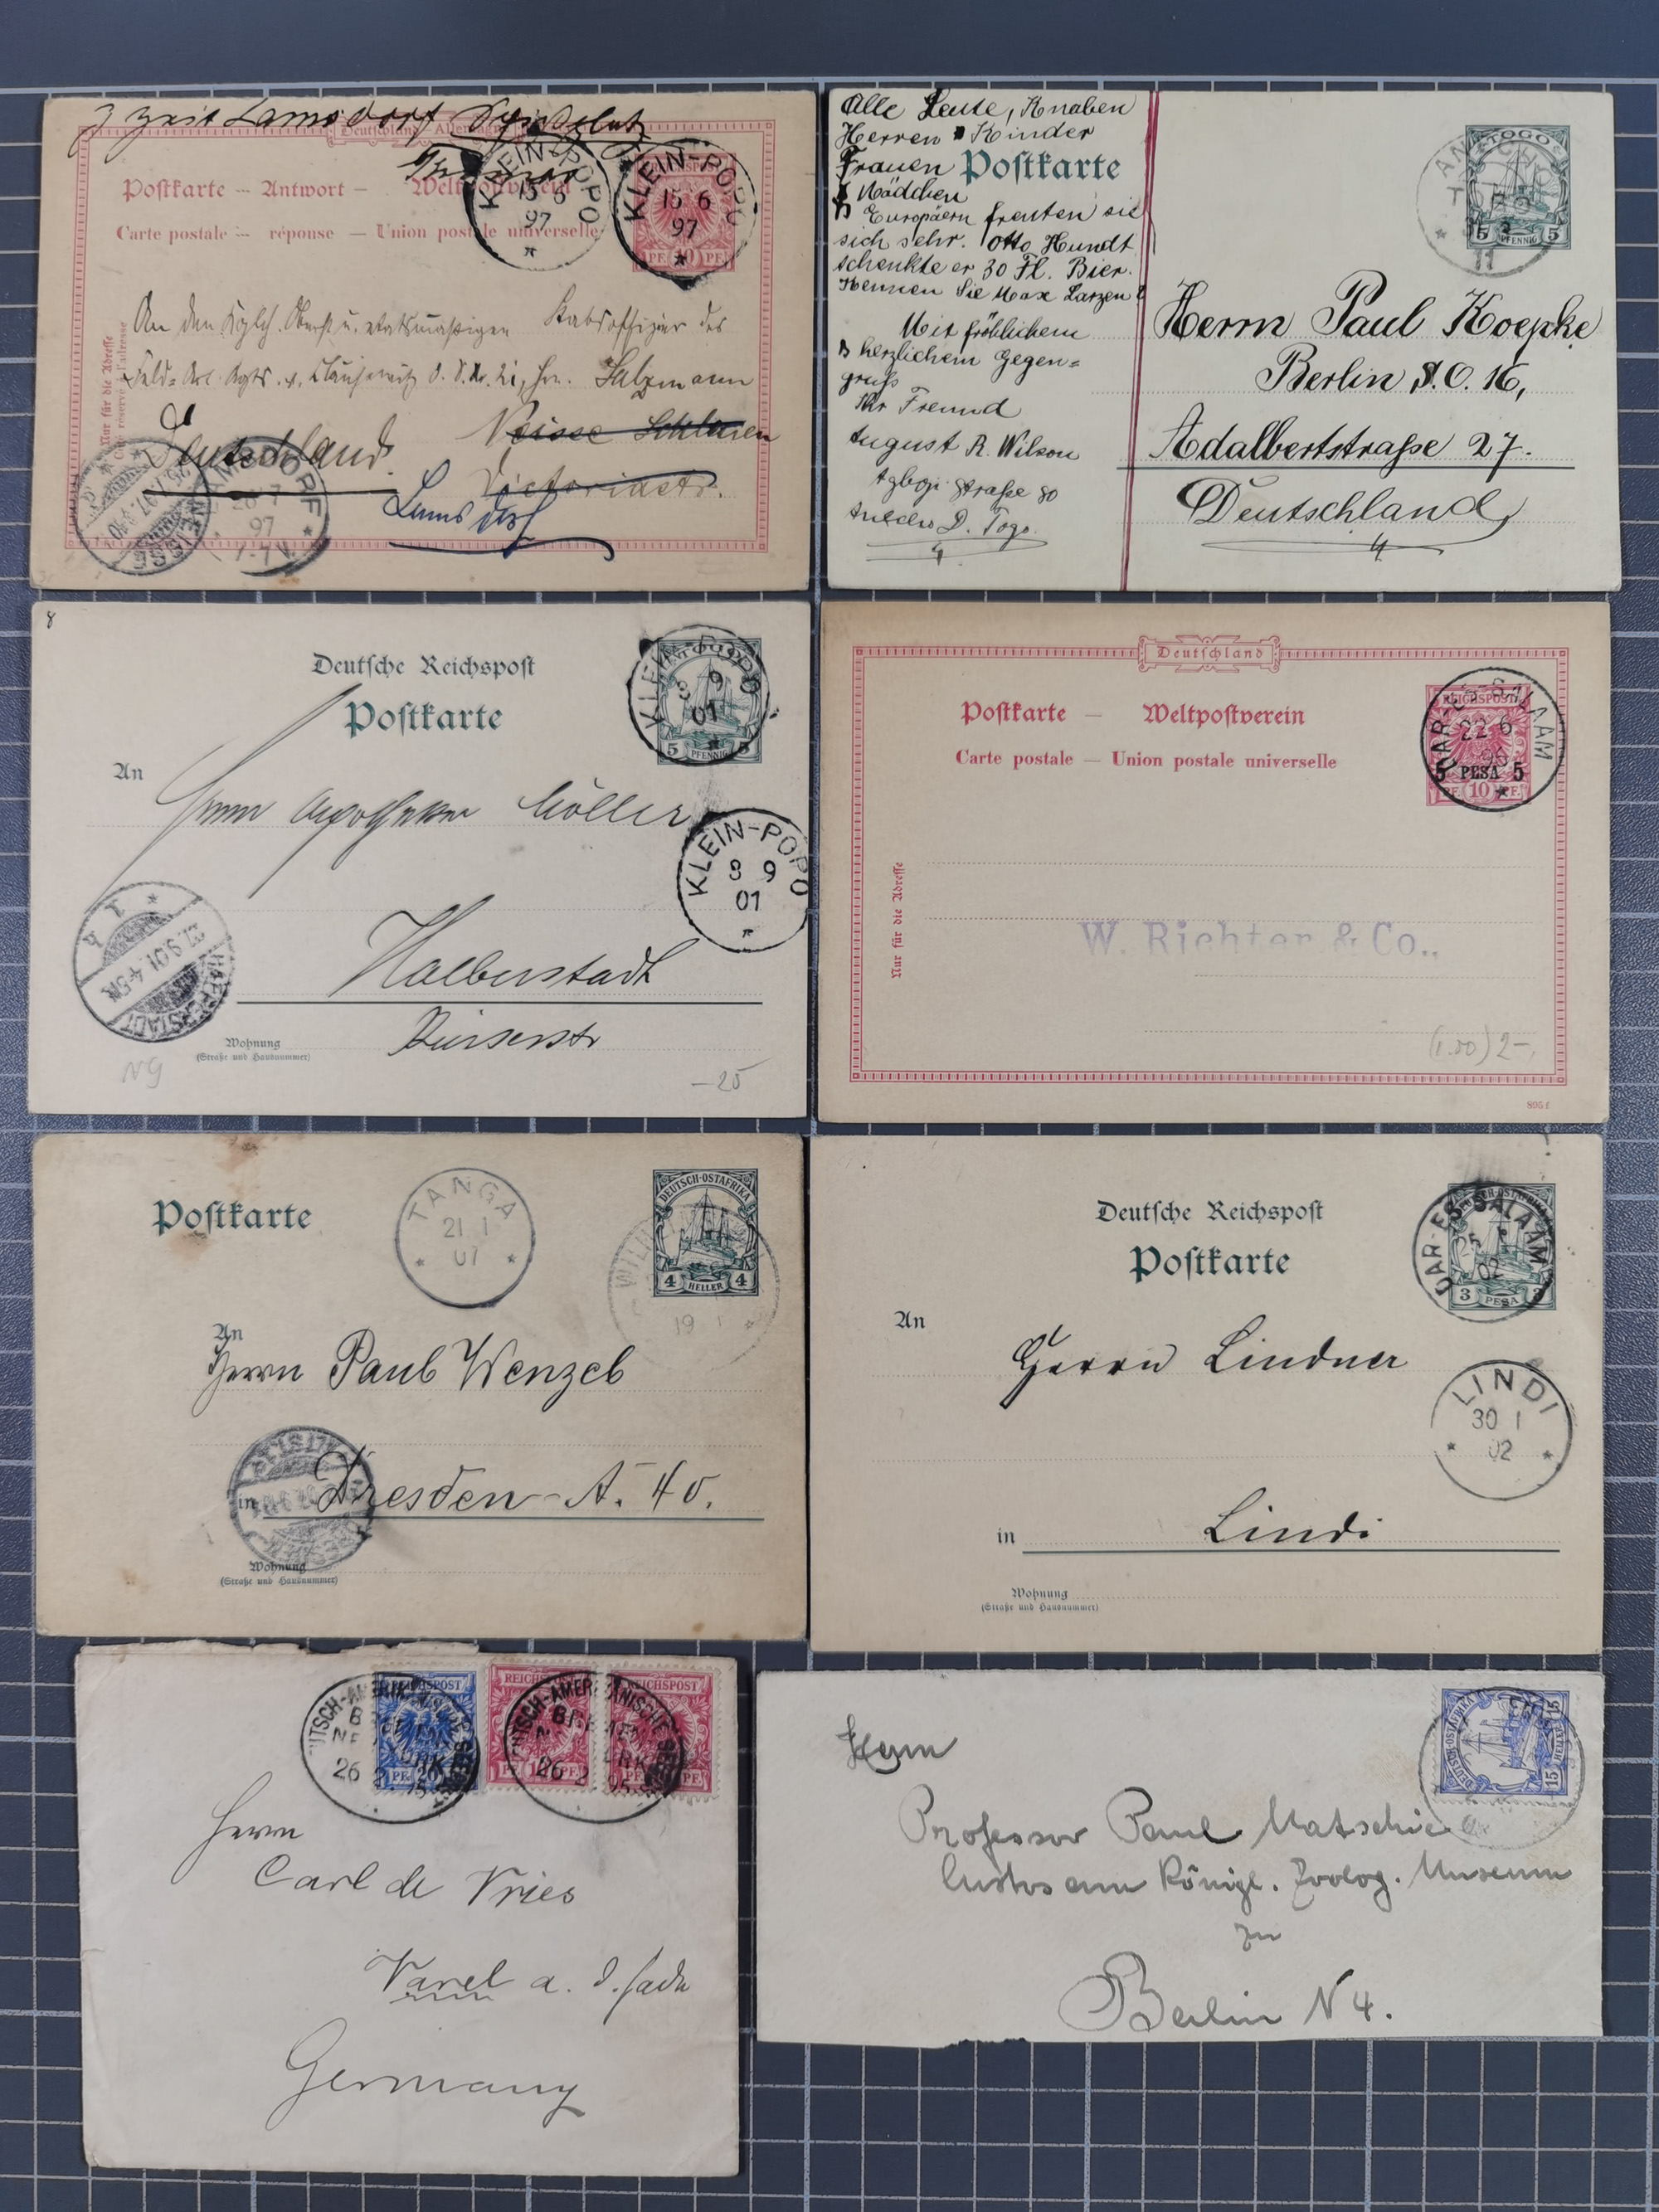 z Zeit Lamsdorf
Deutschland
KLEIN-POPO
15 6
97
KLEIN-POPO
15 6
97
Postkarte — Antwort — Weltpostverein
Carte postale — réponse — Union postale universelle
REICHSPOST
PF. 10 PF.
An den Stabsoffizier des
Salzmann
Nur für die Adresse
Côté réservé à l'adresse
Deutschland.
Neisse Schlesien
Victoriastr.
Lamsdorf
NEISSE
LAMSDORF
26 7
97
7-8 V.
Alle Leute, Knaben
Herren Kinder
Frauen
Mädchen
Europäern freuten sie
sich sehr. Otto Hundt
schenkte er 30 Fl. Bier.
Kennen Sie Max Larzen?
Mit fröhlichem
herzlichem Gegen=
gruß
Ihr Freund
August R. Wilson
Agbogi Straße 80
Anecho D. Togo.
Postkarte
TOGO
5 PFENNIG 5
ANECHO
TOGO
11
Herrn Paul Koepke
Berlin S.O. 16,
Adalbertstraße 27.
Deutschland
8
Deutsche Reichspost
Postkarte
TOGO
5 PFENNIG 5
KLEIN-POPO
8 9
01
An
Herrn Apotheker Möller
KLEIN-POPO
8 9
01
HALBERSTADT
27.9.01.4-5N.
1
Halberstadt
Wohnung
(Straße und Hausnummer)
N9
-25
Deutschland
Postkarte — Weltpostverein
Carte postale — Union postale universelle
REICHSPOST
5 PESA 5
PF. 10 PF.
DAR-ES-SALAAM
22 6
96
Nur für die Adresse
W. Richter & Co.,
(1.50) 2-,
895 f
Postkarte
TANGA
21 1
07
DEUTSCH-OSTAFRIKA
4 HELLER 4
19 1
An
Herrn Paul Wenzel
in
Dresden-A. 40.
Wohnung
(Straße und Hausnummer)
Deutsche Reichspost
Postkarte
DEUTSCH-OSTAFRIKA
3 PESA 3
DAR-ES-SALAAM
25 1
02
An
Herrn Lindner
LINDI
30 1
02
in
Lindi
Wohnung
(Straße und Hausnummer)
REICHSPOST
REICHSPOST
REICHSPOST
DEUTSCH-AMERIKANISCHE SEEPOST
BREMEN
NEW YORK
26 2
95
DEUTSCH-AMERIKANISCHE SEEPOST
BREMEN
NEW YORK
26 2
95
Herrn
Carl de Vries
Varel a. d. Jade
Germany
DEUTSCH-OSTAFRIKA
15 HELLER 15
Herrn
Professor Paul Matschie
Custos am Königl. Zoolog. Museum
zu
Berlin N 4.